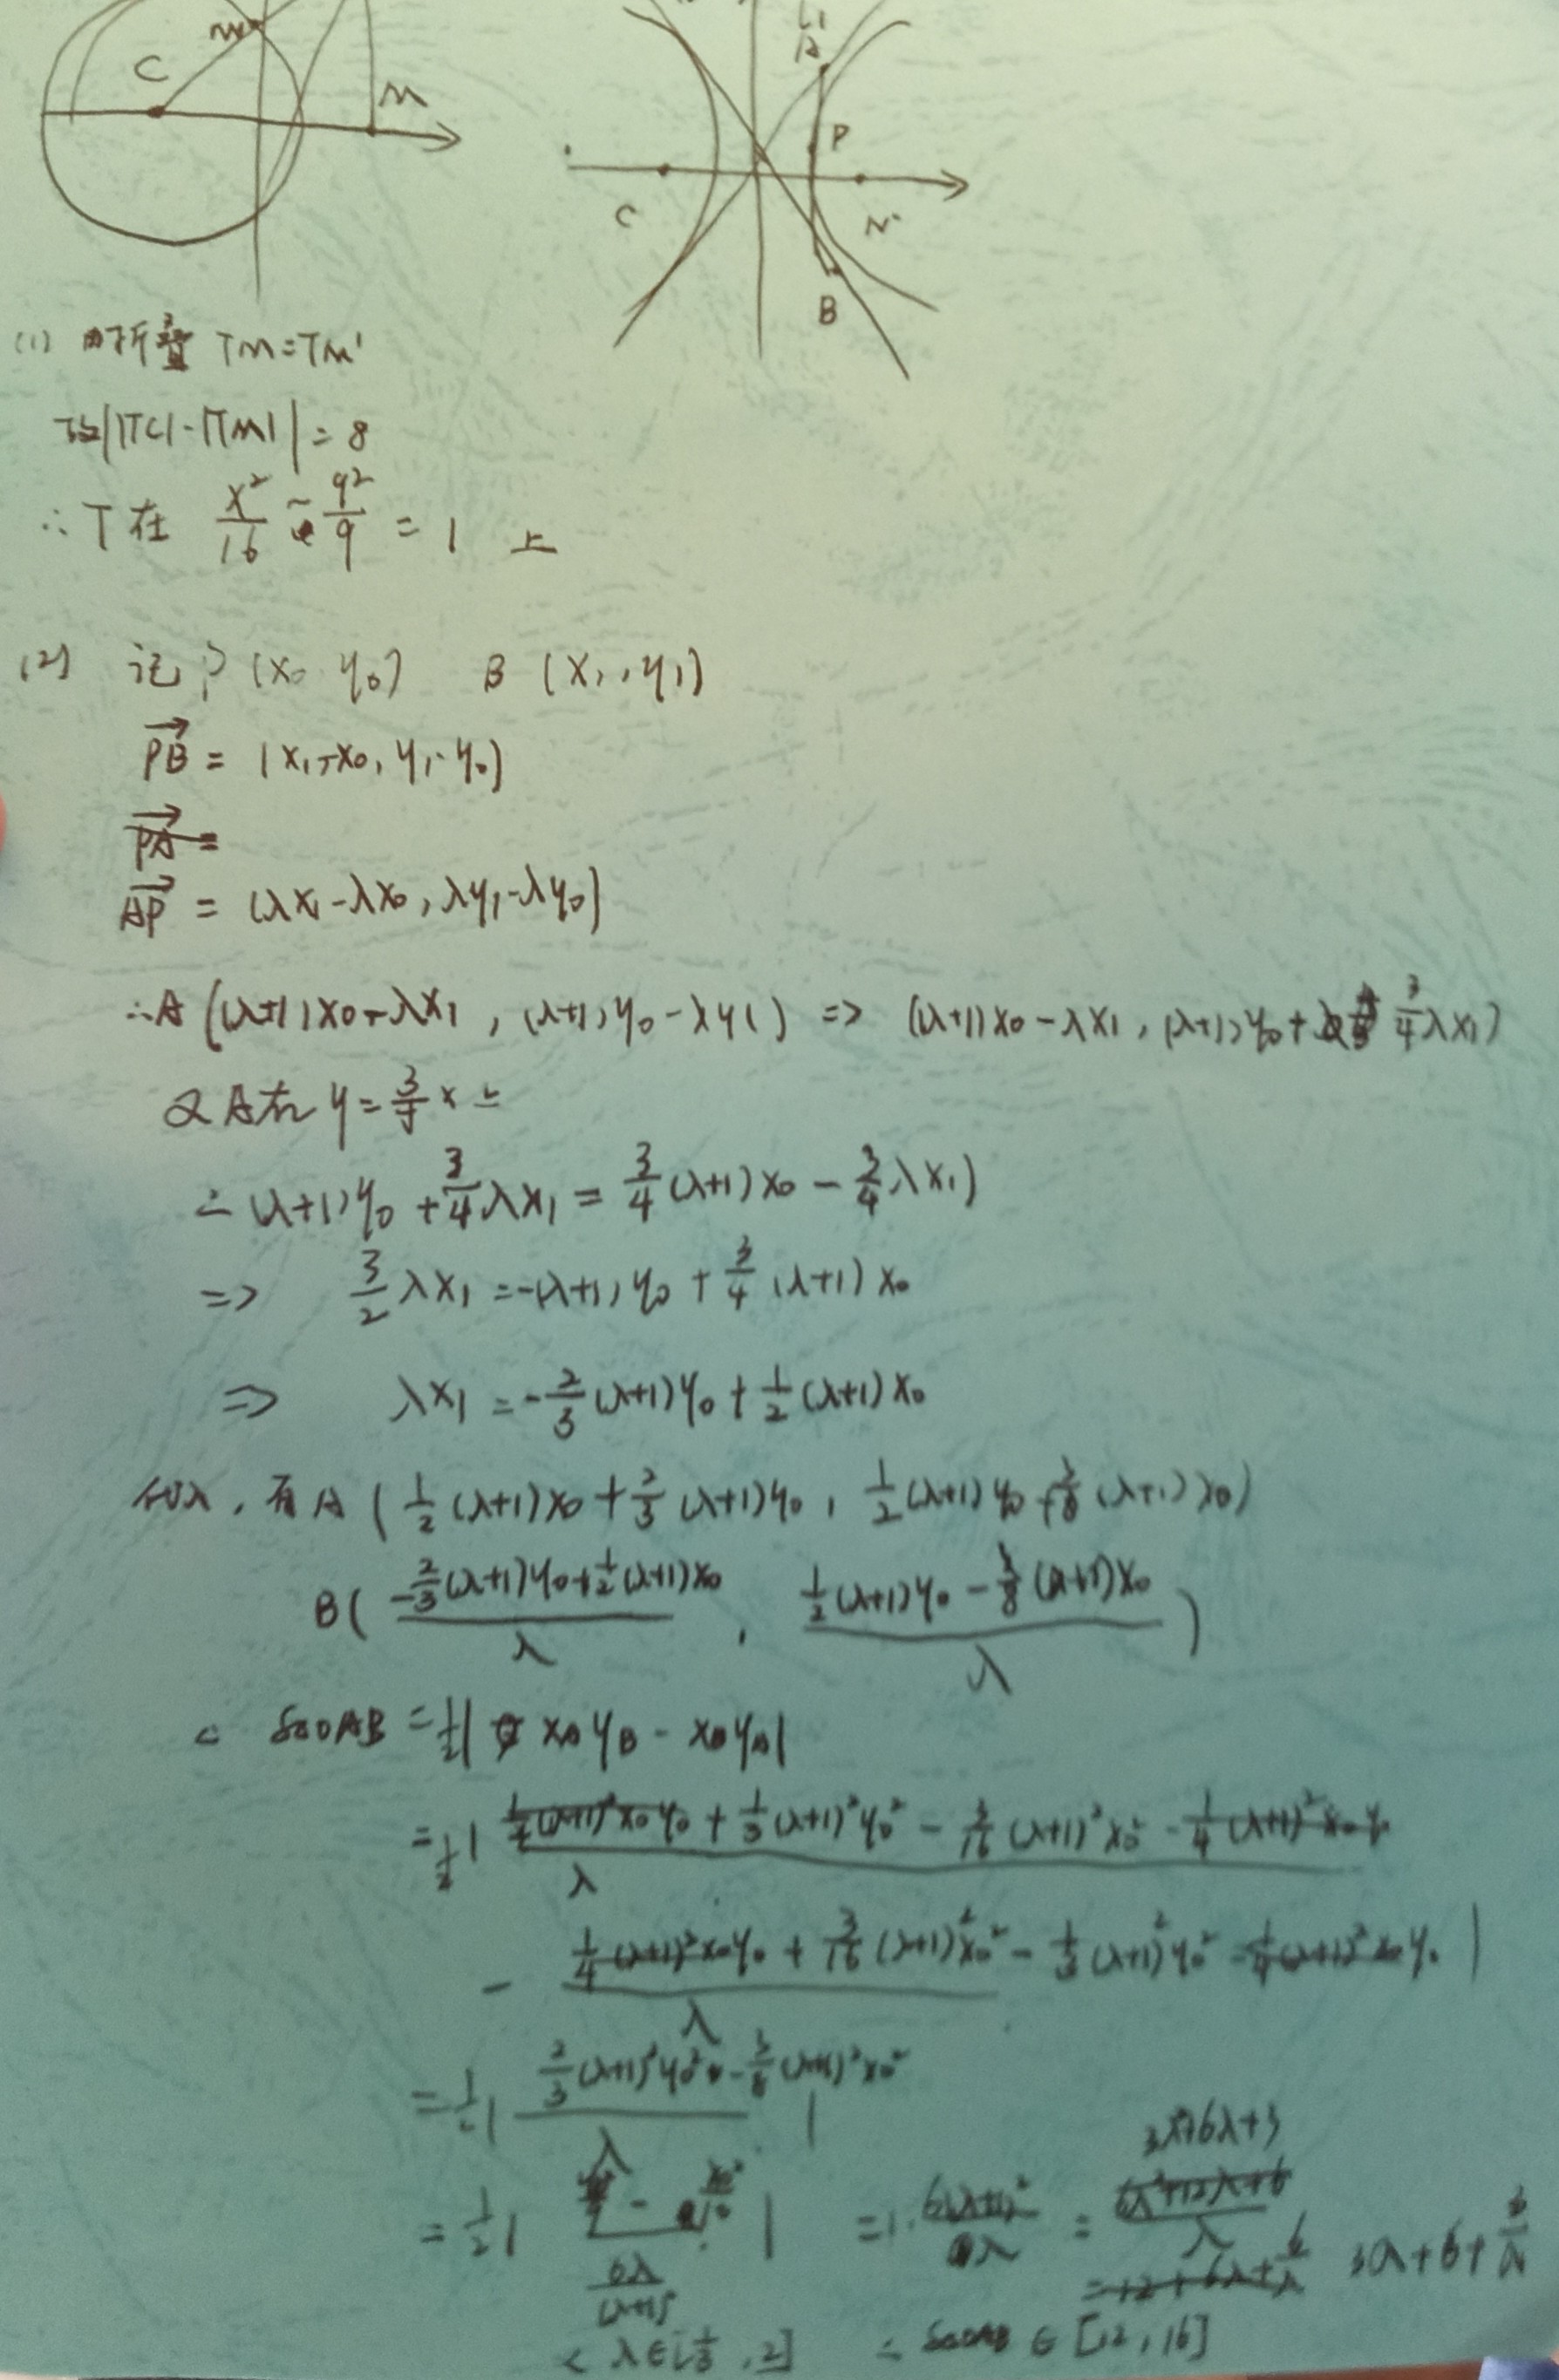 C M
L1 A P C B
(1) 由折叠 TM=TM'
故||TC|-|TM||=8
∴T在 x²/16 - y²/9 = 1 上
(2) 记P(x₀ y₀) B(x₁,y₁)
PB→ = (x₁-x₀, y₁-y₀)
AP→ = (λx₁-λx₀, λy₁-λy₀)
∴A((λ+1)x₀-λx₁, (λ+1)y₀-λy₁) => ((λ+1)x₀-λx₁, (λ+1)y₀+3/4λx₁)
又A在 y= x上
∴(λ+1)y₀+3/4λx₁=3/4(λ+1)x₀-3/4λx₁)
=> 3/2λx₁=-(λ+1)y₀+3/4(λ+1)x₀
=> λx₁=-2/3(λ+1)y₀+1/2(λ+1)x₀
代入, 有A(1/2(λ+1)x₀+2/3(λ+1)y₀, 1/2(λ+1)y₀+3/8(λ+1)x₀)
B((-2/3(λ+1)y₀+1/2(λ+1)x₀)/λ, (1/2(λ+1)y₀-3/8(λ+1)x₀)/λ)
∴ S△OAB=1/2|xAyB-xByA|
=1/2|(1/4(λ+1)²x₀y₀+1/3(λ+1)²y₀²-3/16(λ+1)²x₀²-1/4(λ+1)²x₀y₀)/λ
-(1/4(λ+1)²x₀y₀+3/16(λ+1)²x₀²-1/3(λ+1)²y₀²-1/4(λ+1)²x₀y₀)/λ|
=1/2|(2/3(λ+1)²y₀²-3/8(λ+1)²x₀²)/λ|
3λ²+6λ+3
3λ+6+3/λ
λ∈[1/3,2] ∴ S△OAB∈[12,16]